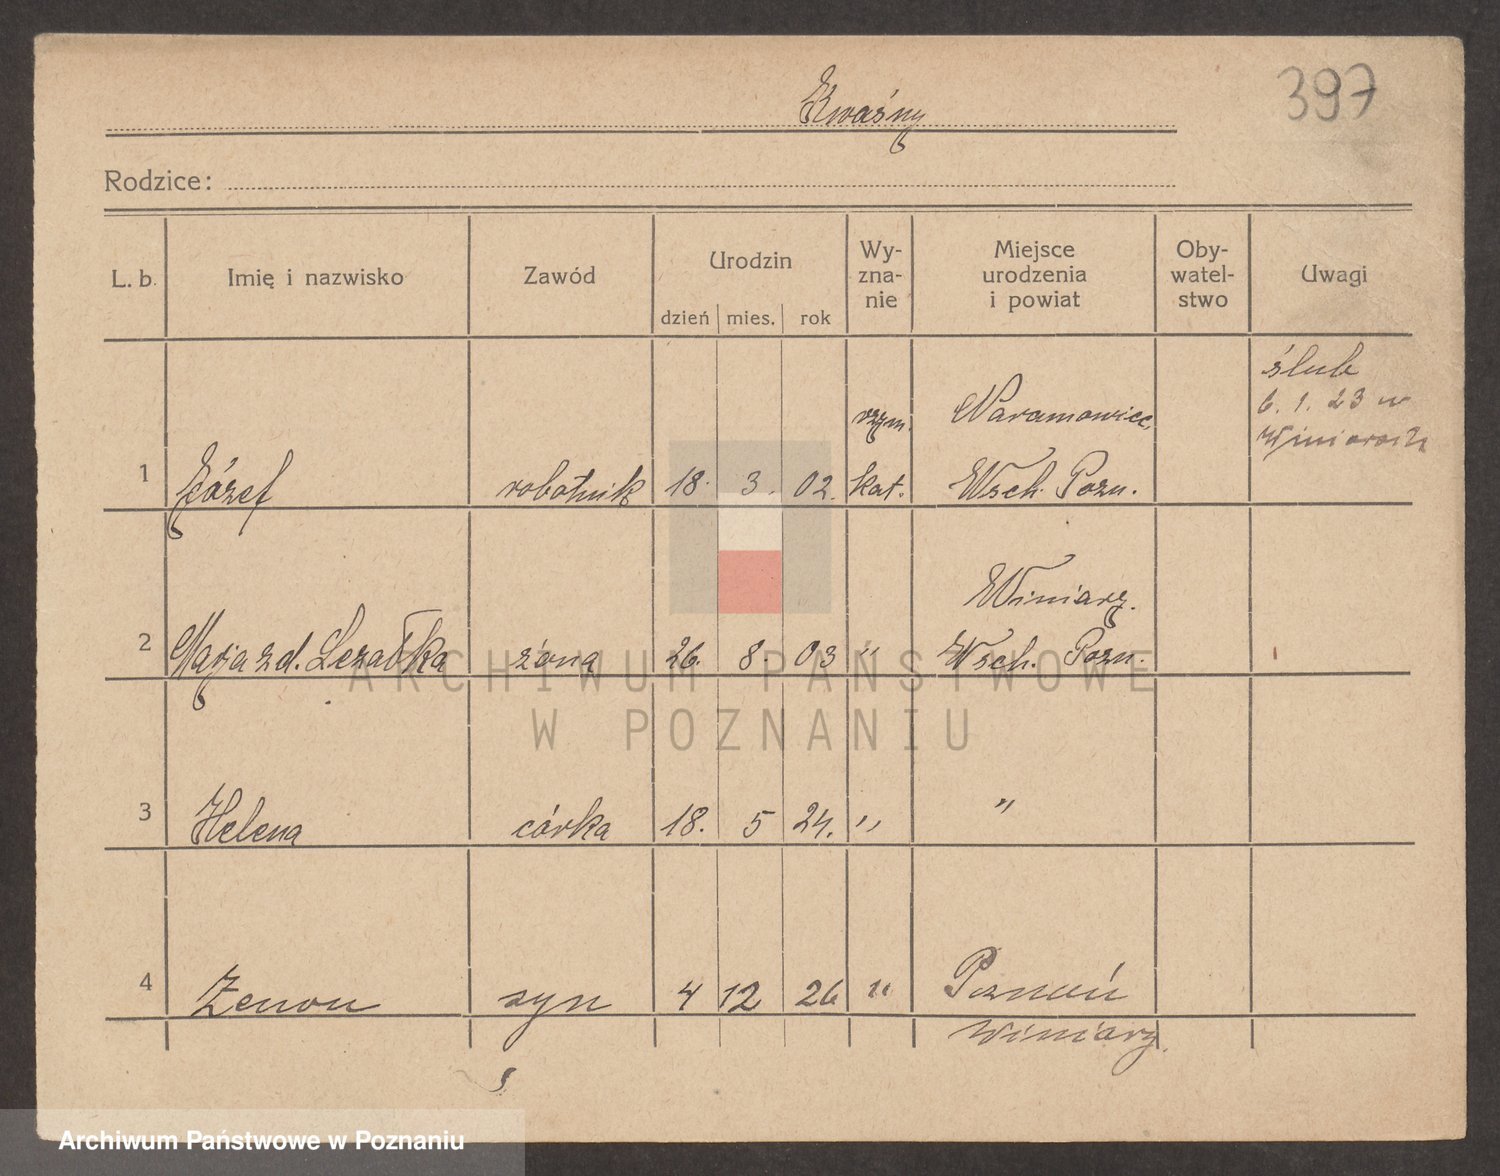 397
Kwaśny
Rodzice:
L. b. Imię i nazwisko Zawód Urodzin dzień mies. rok Wy-zna-nie Miejsce urodzenia i powiat Oby-watel-stwo Uwagi
ślub
6. 1. 23 w
Winiarach
rzym. Naramowice
1 Józef robotnik 18. 3. 02. kat. Wsch. Pozn.
Winiary.
2 Marja z d. Leżałka żona 26. 8. 03 " Wsch. Pozn.
3 Helena córka 18. 5 24. " "
4 Zenon syn 4 12 26 " Poznań
Winiary.
ARCHIWUM PAŃSTWOWE
W POZNANIU
Archiwum Państwowe w Poznaniu